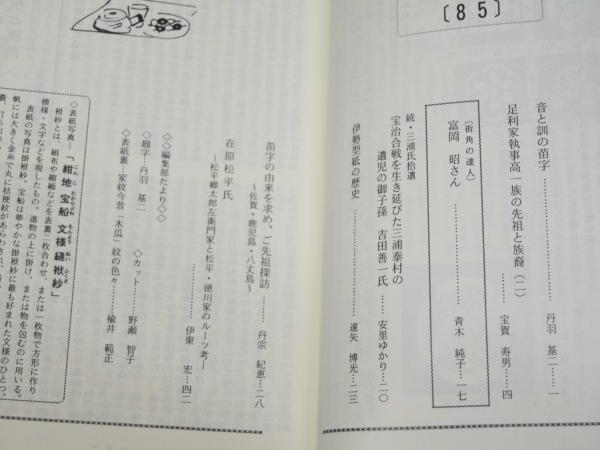 〔85〕
音と訓の苗字……………………………丹羽 基二…一
足利家執事高一族の先祖と族裔（二）………宝賀 寿男…四
〔街角の達人〕
富岡 昭さん……………………………青木 純子…一七
続・三浦氏拾遺
宝治合戦を生き延びた三浦泰村の
遺児の御子孫 吉田善一氏……安里ゆかり…二〇
伊勢型紙の歴史……………………………遠矢 博光…二三
苗字の由来を求め、ご先祖探訪
～佐賀・鹿児島・八丈島～………丹宗 紀恵…二八
在原松平氏
―松平郷太郎左衛門家と松平・徳川家のルーツ考―
………伊東 宏…四二
◇◇編集部だより◇◇
◇題字…丹羽 基二 ◇カット…野瀬 智子
◇表紙裏 家紋今昔「木瓜」紋の色々………楡井 範正
◇表紙写真…「紺地 宝船 文様 縫袱紗」
袱紗とは、絹布や縮緬などを表裏二枚合わせ、または一枚物で方形に作り
模様・文字などを現したもの。進物の上に掛け、または物を包むのに用いる。
表紙の写真は掛袱紗。宝船は華やかな掛袱紗に最も好まれた文様のひとつ。
帆には大きく金糸で丸に桔梗紋があらわされ、